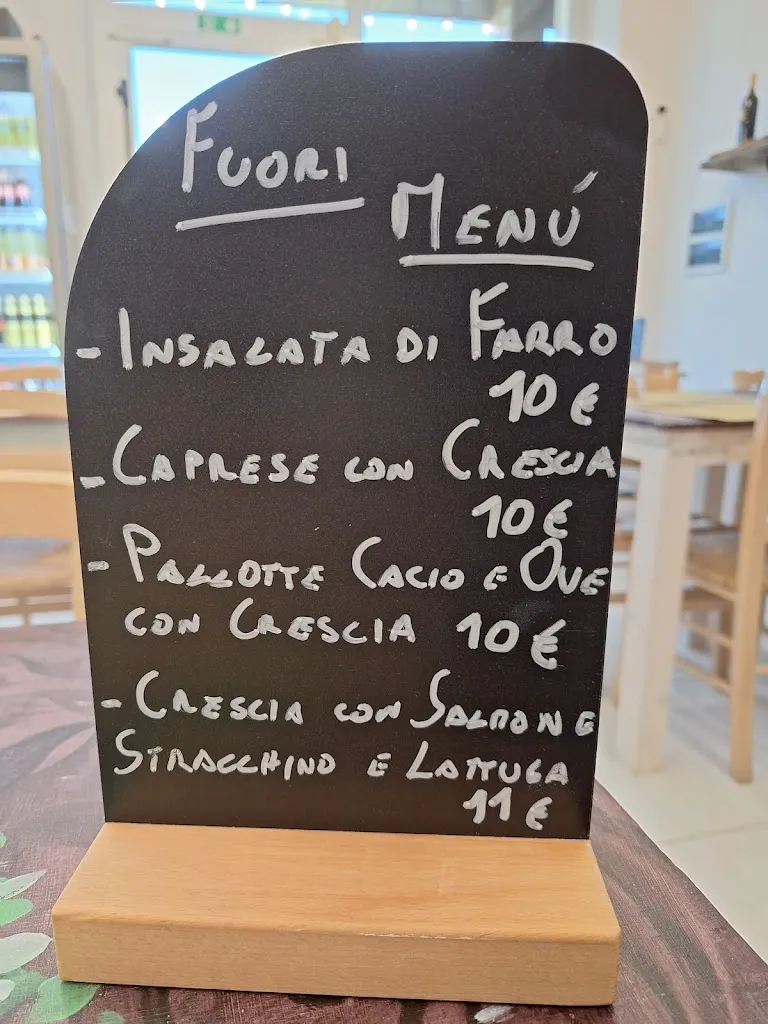 FUORI
MENÚ
- INSALATA DI FARRO
10 €
- CAPRESE CON CRESCIA
10 €
- PALLOTTE CACIO E OVE
CON CRESCIA 10 €
- CRESCIA CON SALMONE
STRACCHINO E LATTUGA
11 €